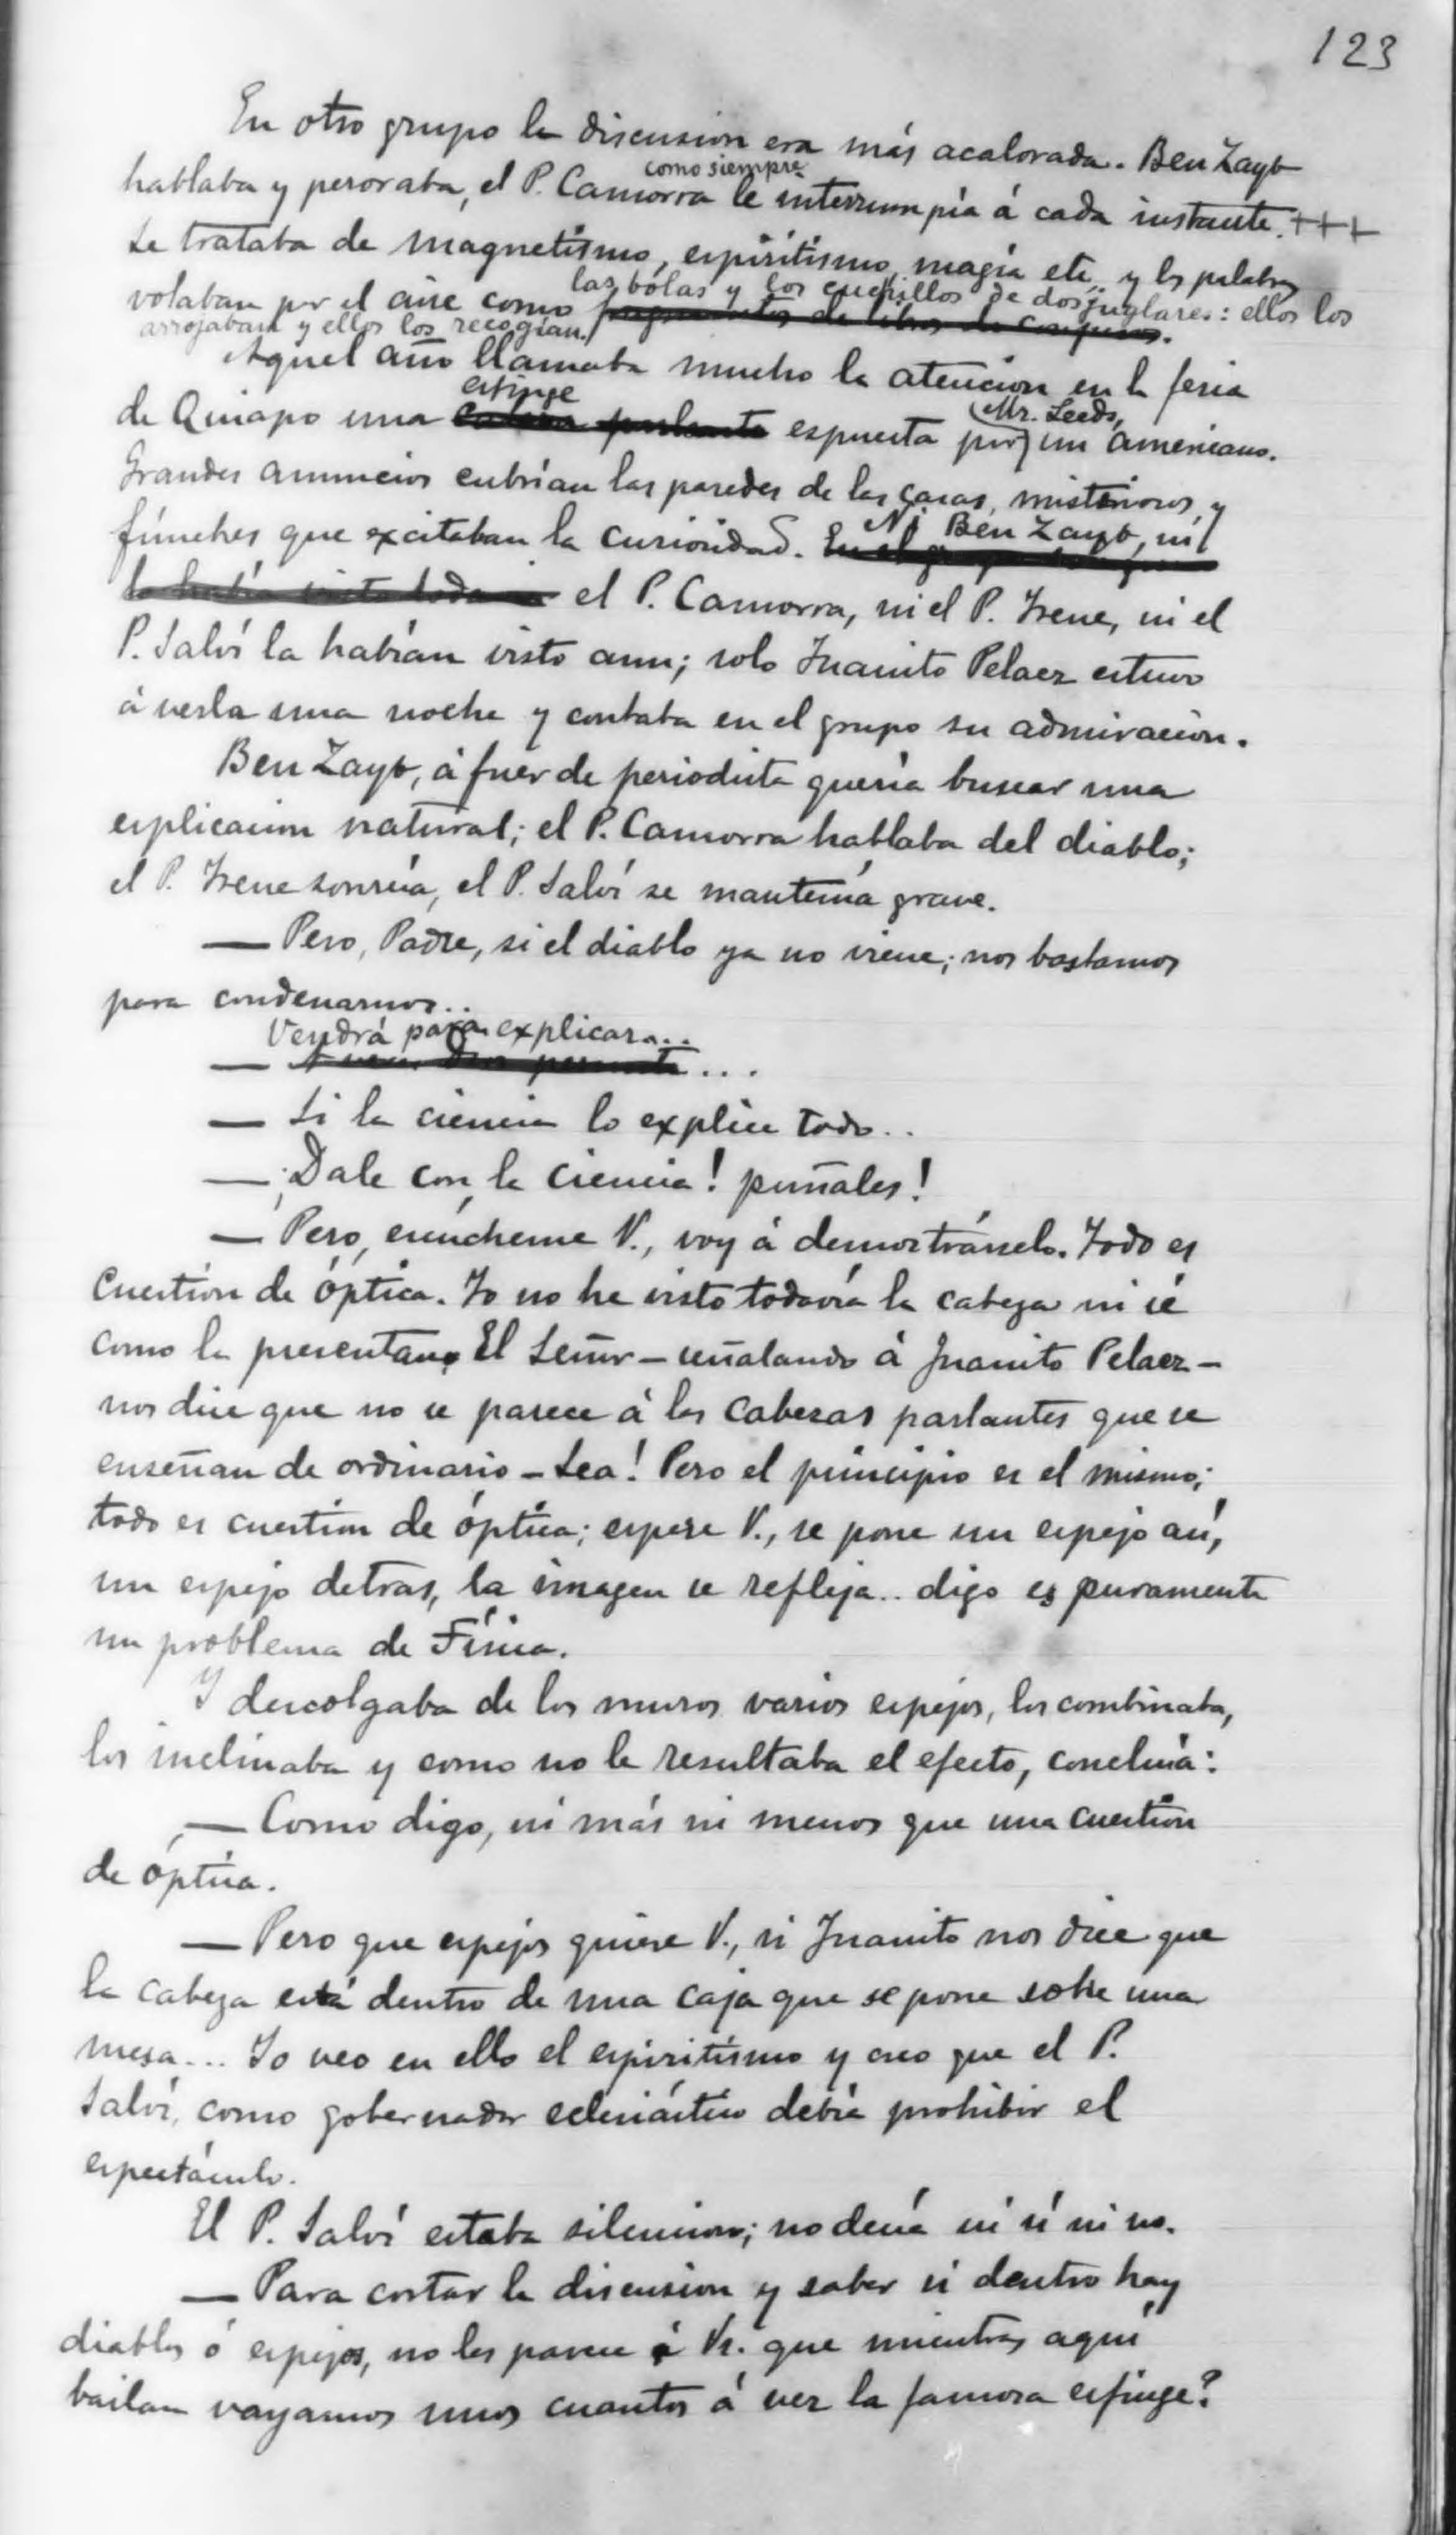 123
En otro grupo la discusion era más acalorada. Ben Zayb
como siempre
hablaba y peroraba, el P. Camorra le interrumpía á cada instante. +++
Se trataba de magnetismo, espiritismo, magia etc. y las palabras
las bolas y los cuchillos de dos juglares: ellos los
volaban por el aire como
arrojaban y ellos los recogían.
Aquel año llamaba mucho la atencion en la feria
esfinge
Mr. Leeds,
de Quiapo una cabeza parlante espuesta por un americano.
Grandes anuncios cubrían las paredes de las casas, misteriosos y
fúnebres que excitaban la curiosidad. Ni Ben Zayb, ni
el P. Camorra, ni el P. Irene, ni el
P. Salví la habían visto aun; solo Juanito Pelaez estuvo
á verla una noche y contaba en el grupo su admiracion.
Ben Zayb, á fuer de periodista quería buscar una
esplicacion natural; el P. Camorra hablaba del diablo;
el P. Irene sonreía, el P. Salví se mantenía grave.
— Pero, Padre, si el diablo ya no viene; nos bastamos
para condenarnos..
Vendrá para explicar...
— ...
— Si la ciencia lo explica todo..
— ¡Dale con la ciencia! puñales!
— Pero, escúcheme V., voy á demostrárselo. Todo es
cuestion de óptica. Yo no he visto todavía la cabeza ni sé
como la presentan. El Señor – señalando á Juanito Pelaez –
nos dice que no se parece á las cabezas parlantes que se
enseñan de ordinario – Sea! Pero el principio es el mismo;
todo es cuestion de óptica; espere V., se pone un espejo así,
un espejo detras, la imagen se refleja.. digo es puramente
un problema de Física.
Y descolgaba de los muros varios espejos, los combinaba,
los inclinaba y como no le resultaba el efecto, concluía:
— Como digo, ni más ni menos que una cuestion
de óptica.
— Pero que espejos quiere V., si Juanito nos dice que
la cabeza está dentro de una caja que se pone sobre una
mesa... Yo veo en ello el espiritismo y creo que el P.
Salví, como gobernador eclesiástico debía prohibir el
espectáculo.
El P. Salví estaba silencioso; no decía ni sí ni no.
— Para cortar la discusion y saber si dentro hay
diablos ó espejos, no les parece á Vs. que mientras aquí
bailan vayamos unos cuantos á ver la famosa esfinge?